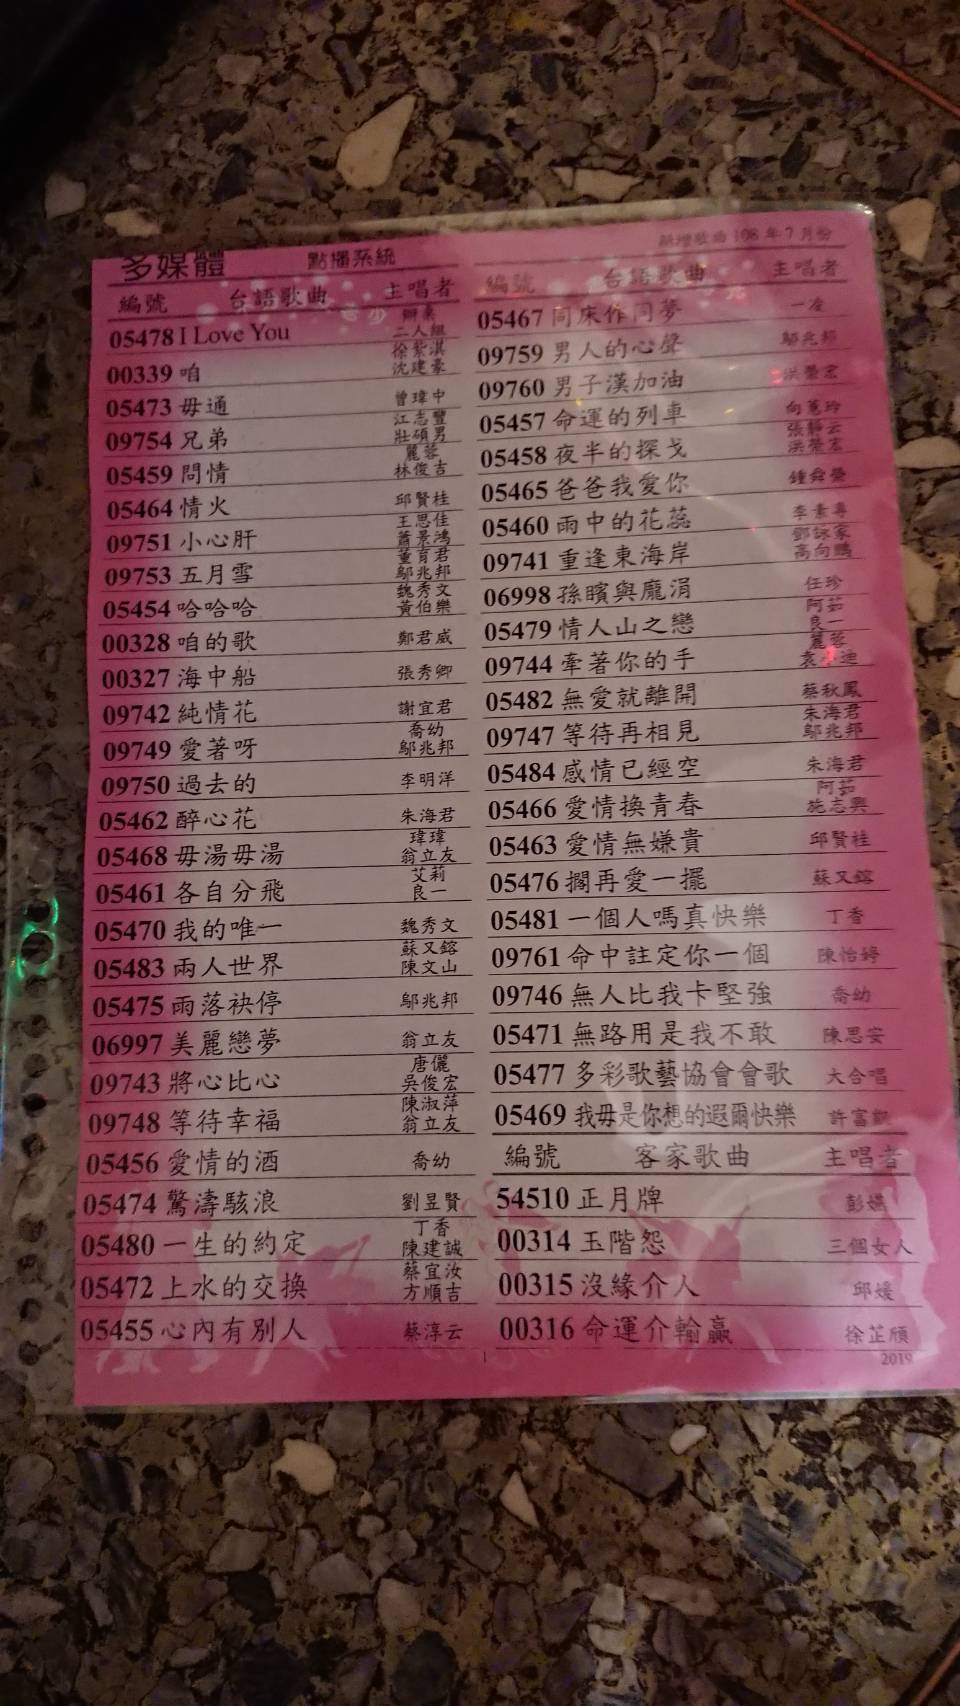 多媒體 點播系統
新增歌曲 108 年 7 月份
編號 台語歌曲 主唱者
05478 I Love You 二人組
00339 咱 徐紫淇 沈建豪
05473 毋通 曾瑋中
09754 兄弟 江志豐 壯碩男
05459 問情 麗蓉 林俊吉
05464 情火 邱賢桂
09751 小心肝 王思佳 蕭景鴻
09753 五月雪 董育君 鄔兆邦
05454 哈哈哈 魏秀文 黃伯樂
00328 咱的歌 鄭君威
00327 海中船 張秀卿
09742 純情花 謝宜君
09749 愛著呀 喬幼 鄔兆邦
09750 過去的 李明洋
05462 醉心花 朱海君
05468 毋湯毋湯 瑋瑋 翁立友
05461 各自分飛 艾莉 良一
05470 我的唯一 魏秀文
05483 兩人世界 蘇又鎔 陳文山
05475 雨落袂停 鄔兆邦
06997 美麗戀夢 翁立友
09743 將心比心 唐儷 吳俊宏
09748 等待幸福 陳淑萍 翁立友
05456 愛情的酒 喬幼
05474 驚濤駭浪 劉昱賢
05480 一生的約定 丁香 陳建誠
05472 上水的交換 蔡宜汝 方順吉
05455 心內有別人 蔡淳云
編號 台語歌曲 主唱者
05467 同床作同夢
09759 男人的心聲 鄔兆邦
09760 男子漢加油 洪榮宏
05457 命運的列車 向蕙玲
05458 夜半的探戈 張靜云 洪榮宏
05465 爸爸我愛你 鍾舜榮
05460 雨中的花蕊 李素專
09741 重逢東海岸 鄧詠家 高向鵬
06998 孫臏與龐涓 任珍
05479 情人山之戀 阿茹 良一
09744 牽著你的手 麗蓉 袁小迪
05482 無愛就離開 蔡秋鳳
09747 等待再相見 朱海君 鄔兆邦
05484 感情已經空 朱海君
05466 愛情換青春 阿茹 施志興
05463 愛情無嫌貴 邱賢桂
05476 擱再愛一擺 蘇又鎔
05481 一個人嗎真快樂 丁香
09761 命中註定你一個 陳怡婷
09746 無人比我卡堅強 喬幼
05471 無路用是我不敢 陳思安
05477 多彩歌藝協會會歌 大合唱
05469 我毋是你想的遐爾快樂 許富凱
編號 客家歌曲 主唱者
54510 正月牌
00314 玉階怨 三個女人
00315 沒緣介人 邱媛
00316 命運介輸贏 徐芷頎
2019
1